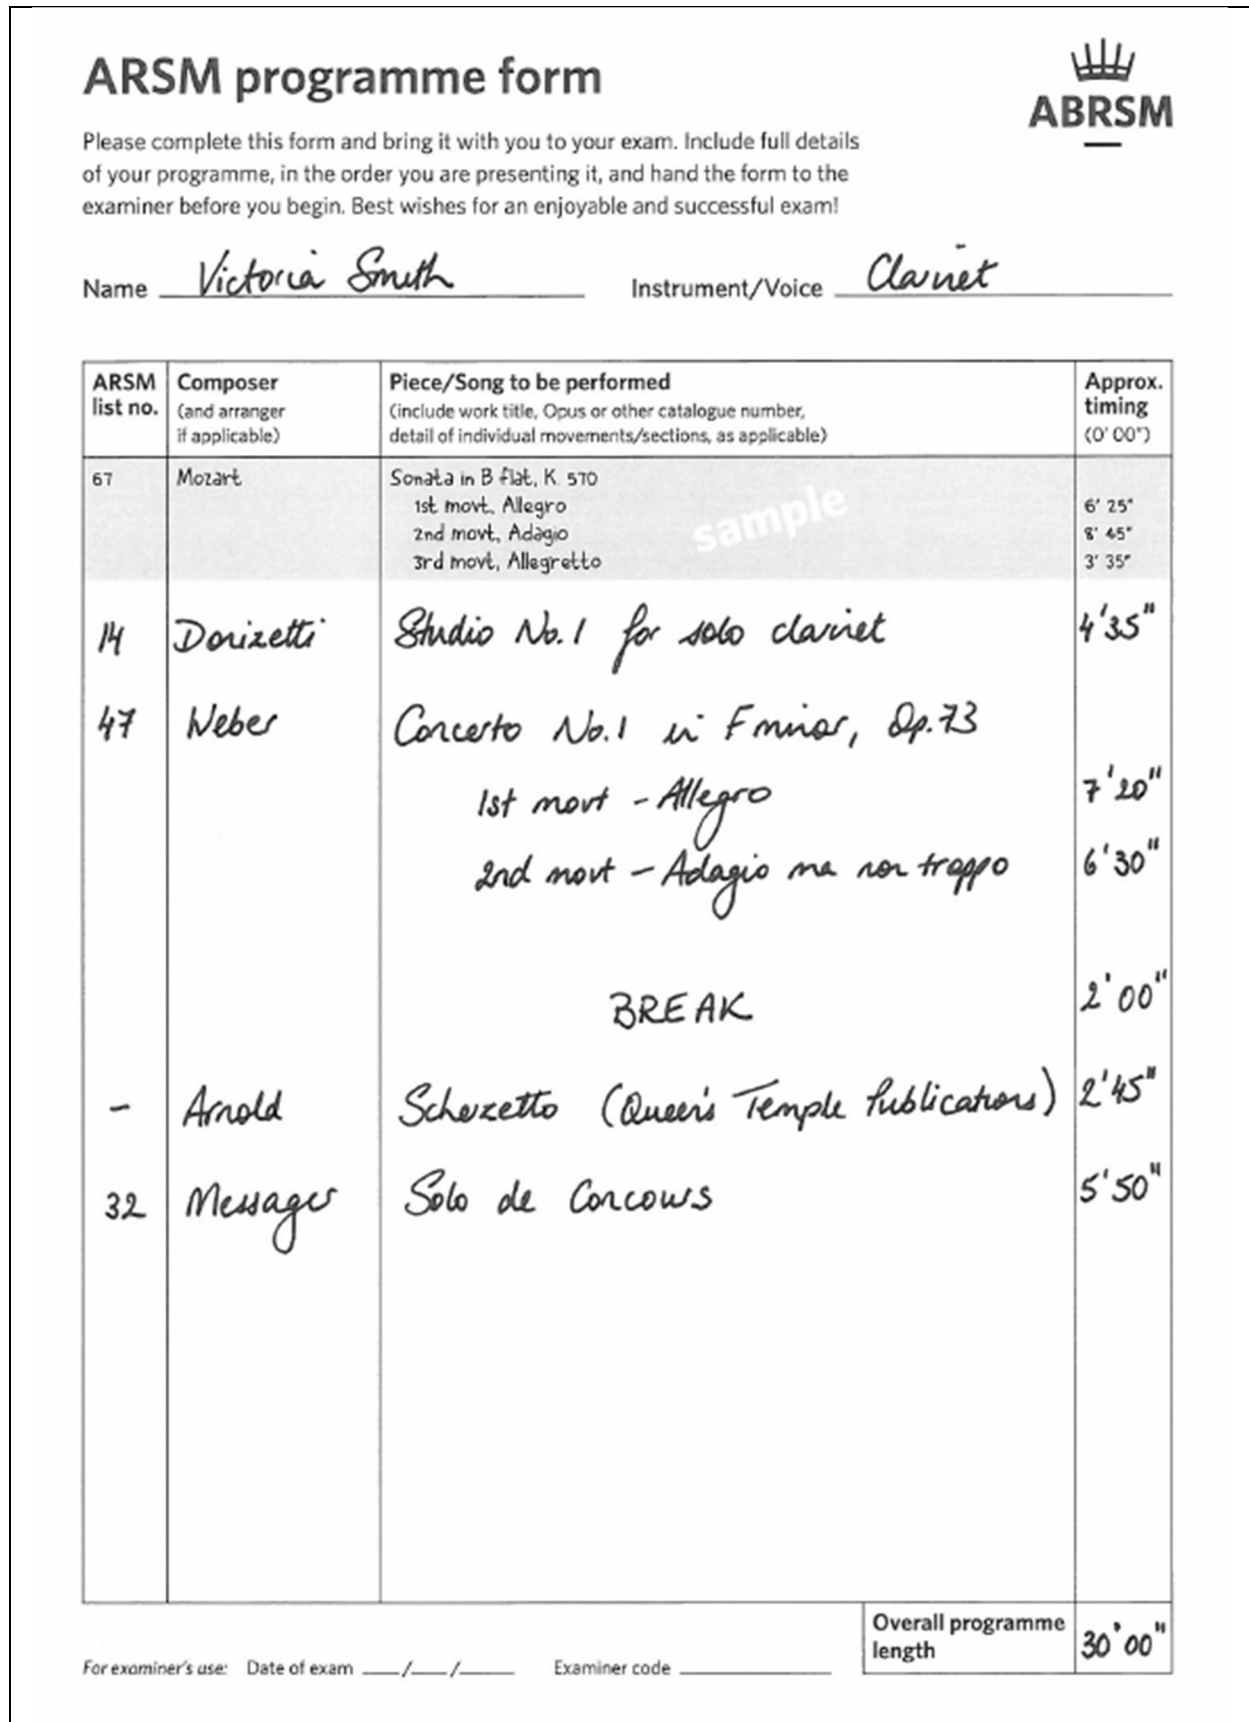 ARSM programme form
ABRSM
Please complete this form and bring it with you to your exam. Include full details
of your programme, in the order you are presenting it, and hand the form to the
examiner before you begin. Best wishes for an enjoyable and successful exam!
Name Victoria Smith Instrument/Voice Clarinet
ARSM list no. Composer (and arranger if applicable) Piece/Song to be performed (include work title, Opus or other catalogue number, detail of individual movements/sections, as applicable) Approx. timing (0' 00")
67 Mozart Sonata in B flat, K. 570
1st movt, Allegro 6' 25"
2nd movt, Adagio 8' 45"
3rd movt, Allegretto 3' 35"
sample
14 Donizetti Studio No.1 for solo clarinet 4'35"
47 Weber Concerto No.1 in F minor, Op.73
1st movt - Allegro 7'20"
2nd movt - Adagio ma non troppo 6'30"
BREAK 2'00"
- Arnold Scherzetto (Queen's Temple Publications) 2'45"
32 Messager Solo de Concours 5'50"
Overall programme length 30'00"
For examiner's use: Date of exam __/__/__ Examiner code